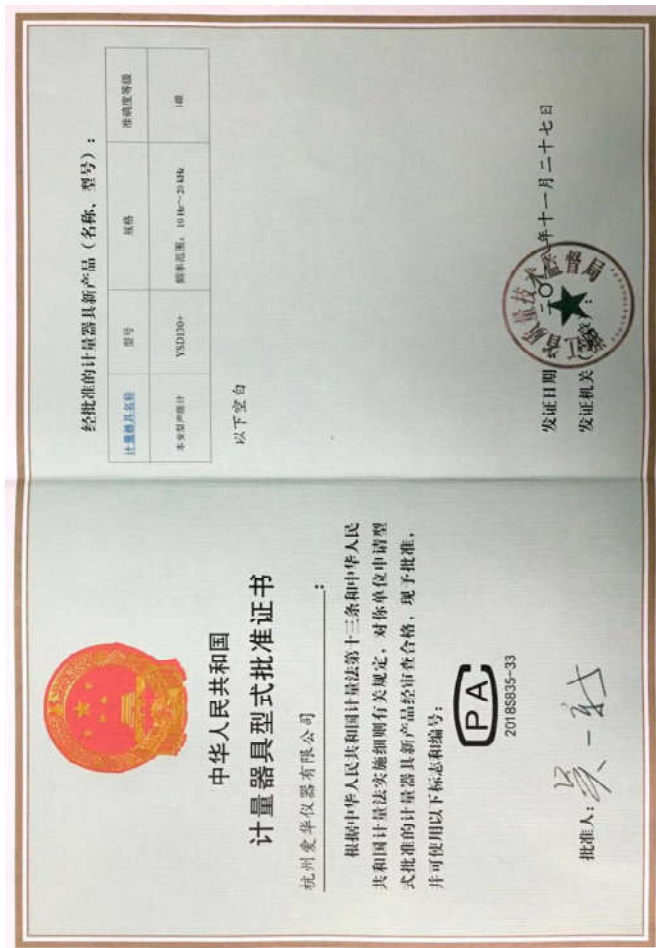 中华人民共和国
计量器具型式批准证书
杭州爱华仪器有限公司：
根据中华人民共和国计量法第十三条和中华人民
共和国计量法实施细则有关规定，对你单位申请型
式批准的计量器具新产品经审查合格，现予批准，
并可使用以下标志和编号：
CPA
2018S835-33
批准人：
经批准的计量器具新产品（名称、型号）：
计量器具名称 型号 规格 准确度等级
本安型声级计 YSD130+ 频率范围：10 Hz～20 kHz 1级
以下空白
发证日期 年十一月二十七日
发证机关
质量技术监督局